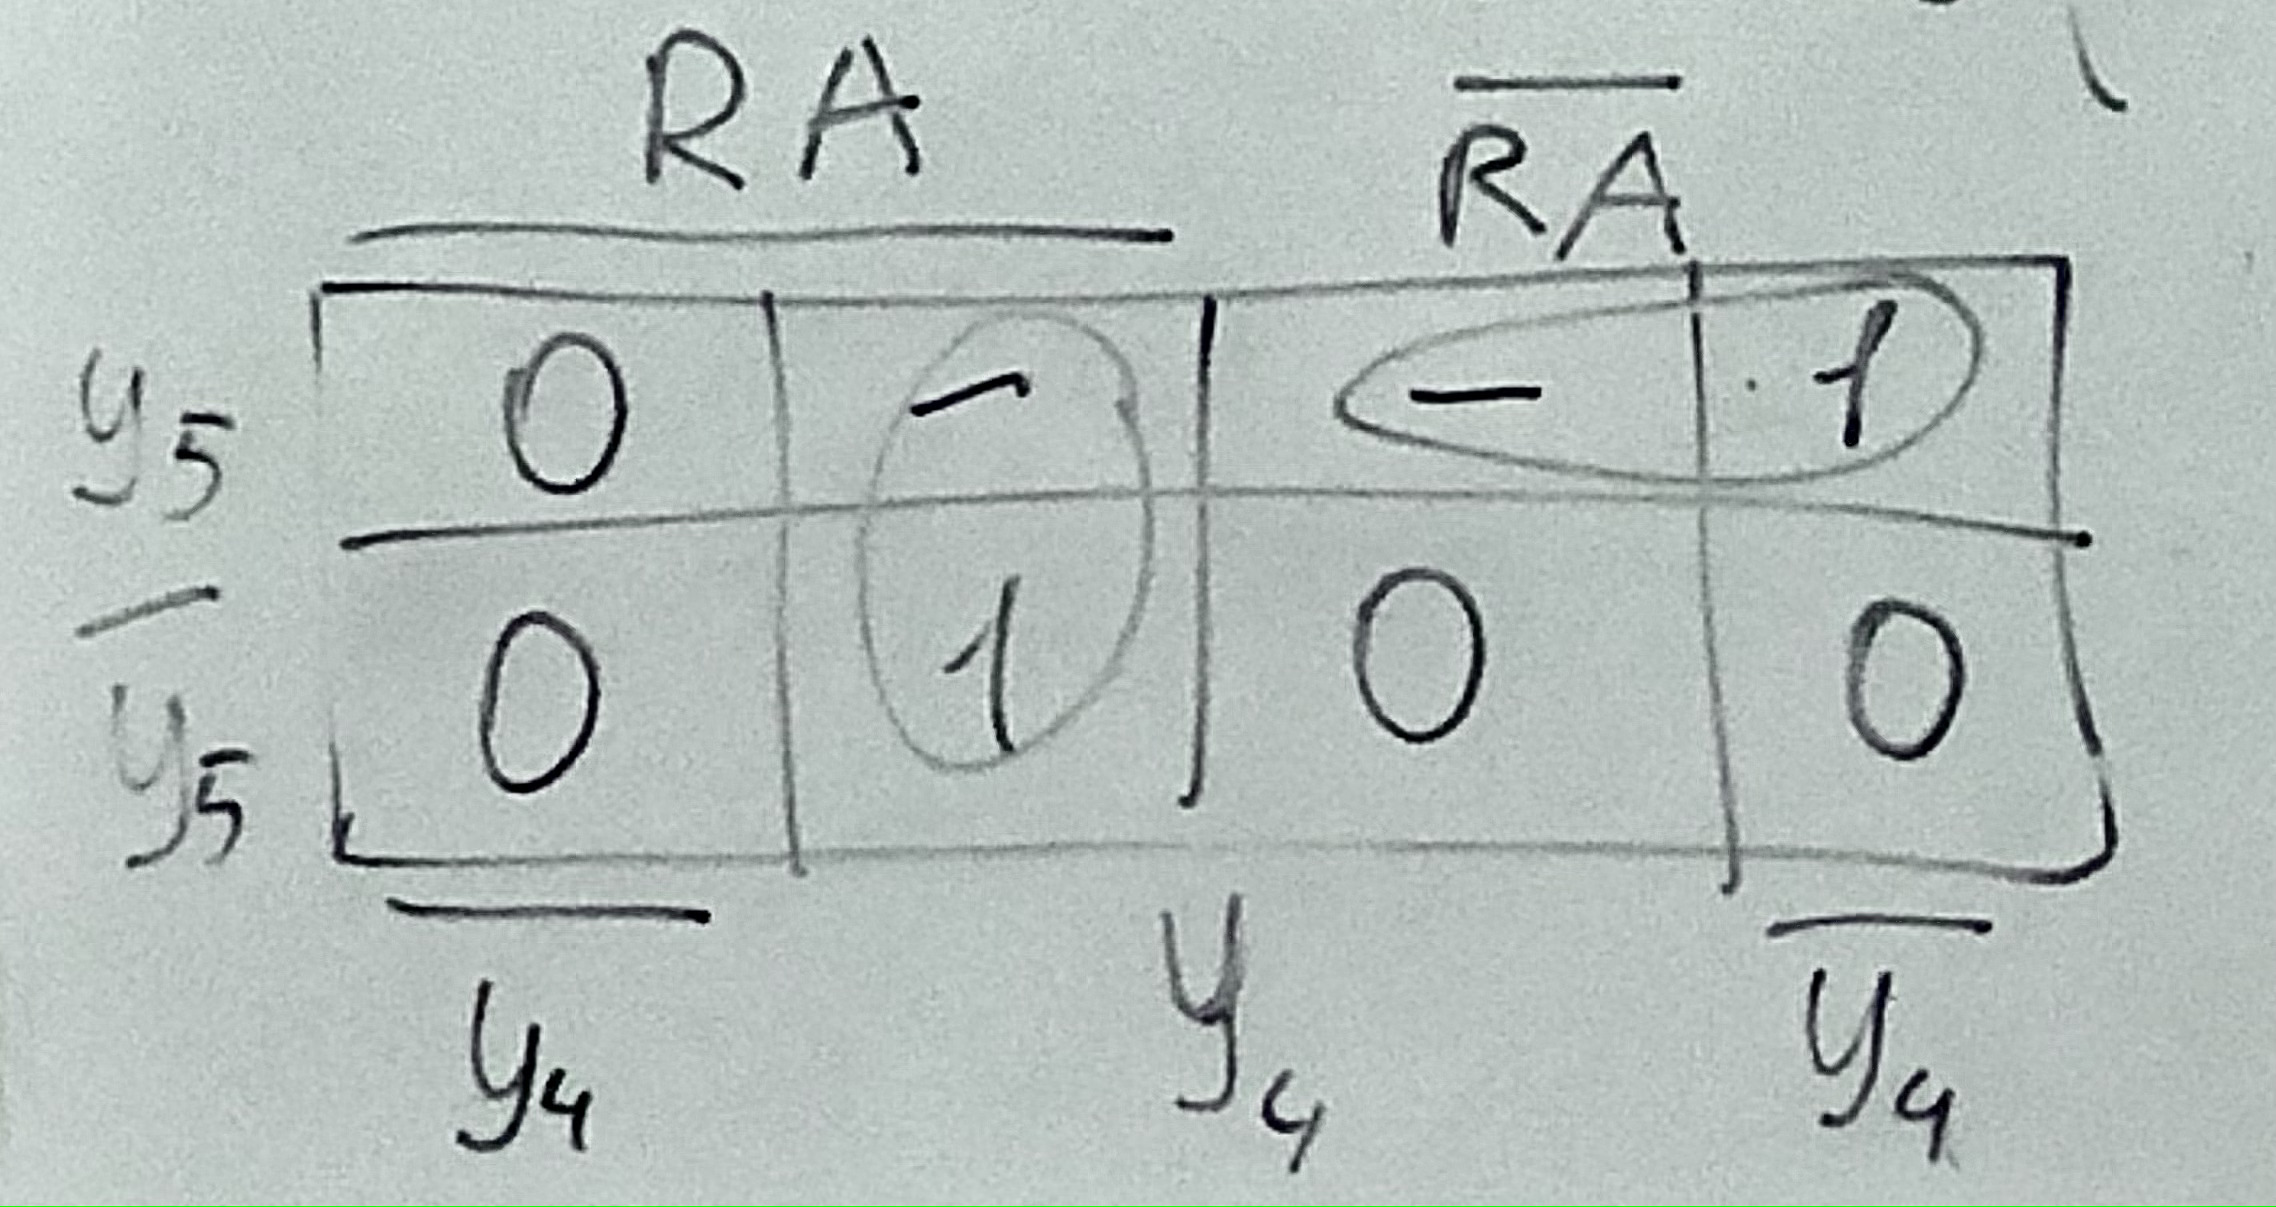 RA R̅A̅
y5 0 – – 1
y̅5 0 1 0 0
y̅4 y4 y̅4